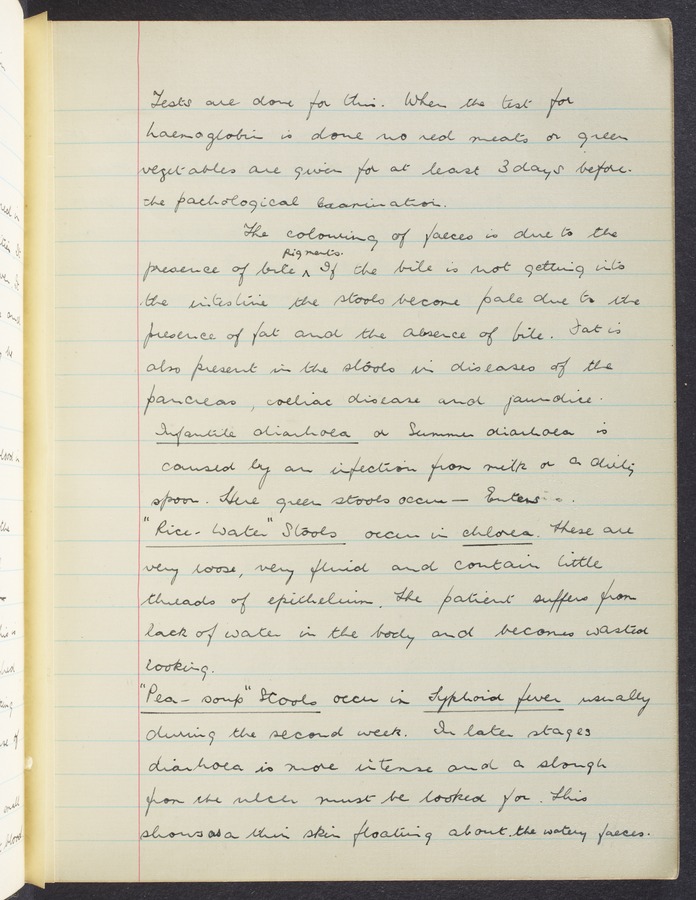 Tests are done for this. When the test for
haemoglobin is done no red meats or green
vegetables are given for at least 3 days before.
the pathological examination.
The colouring of faeces is due to the
pigments.
presence of bile ^ If the bile is not getting into
the intestine the stools become pale due to the
presence of fat and the absence of bile. Fat is
also present in the stools in diseases of the
pancreas, coeliac disease and jaundice.
Infantile diarhoea or Summer diarhoea is
caused by an infection from milk or a dirty
spoon. Here green stools occur —
"Rice-Water" Stools occur in chlorea. These are
very loose, very fluid and contain little
threads of epithelium. The patient suffers from
lack of water in the body and becomes wasted
looking.
"Pea-soup" Stools occur in Typhoid fever usually
during the second week. In later stages
diarhoea is more intense and a slough
from the ulcer must be looked for. This
shows as a thin skin floating about the watery faeces.